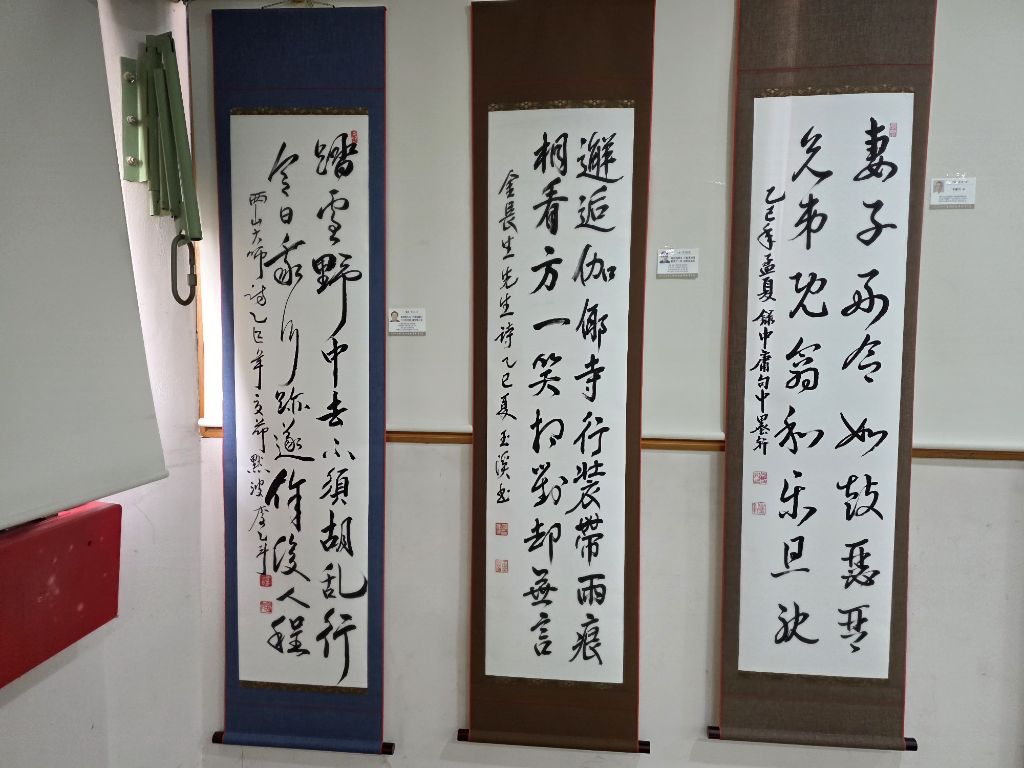 妻子好合如鼓瑟琴
兄弟既翕和乐且耽
乙巳年孟夏 錄中庸句中墨軒
邂逅伽倻寺行裝帶雨痕
相看方一笑相對却無言
金長生先生詩 乙巳夏 玉溪书
踏雪野中去不須胡乱行
今日我行跡遂作後人程
西山大師詩 乙巳年夏節 默波